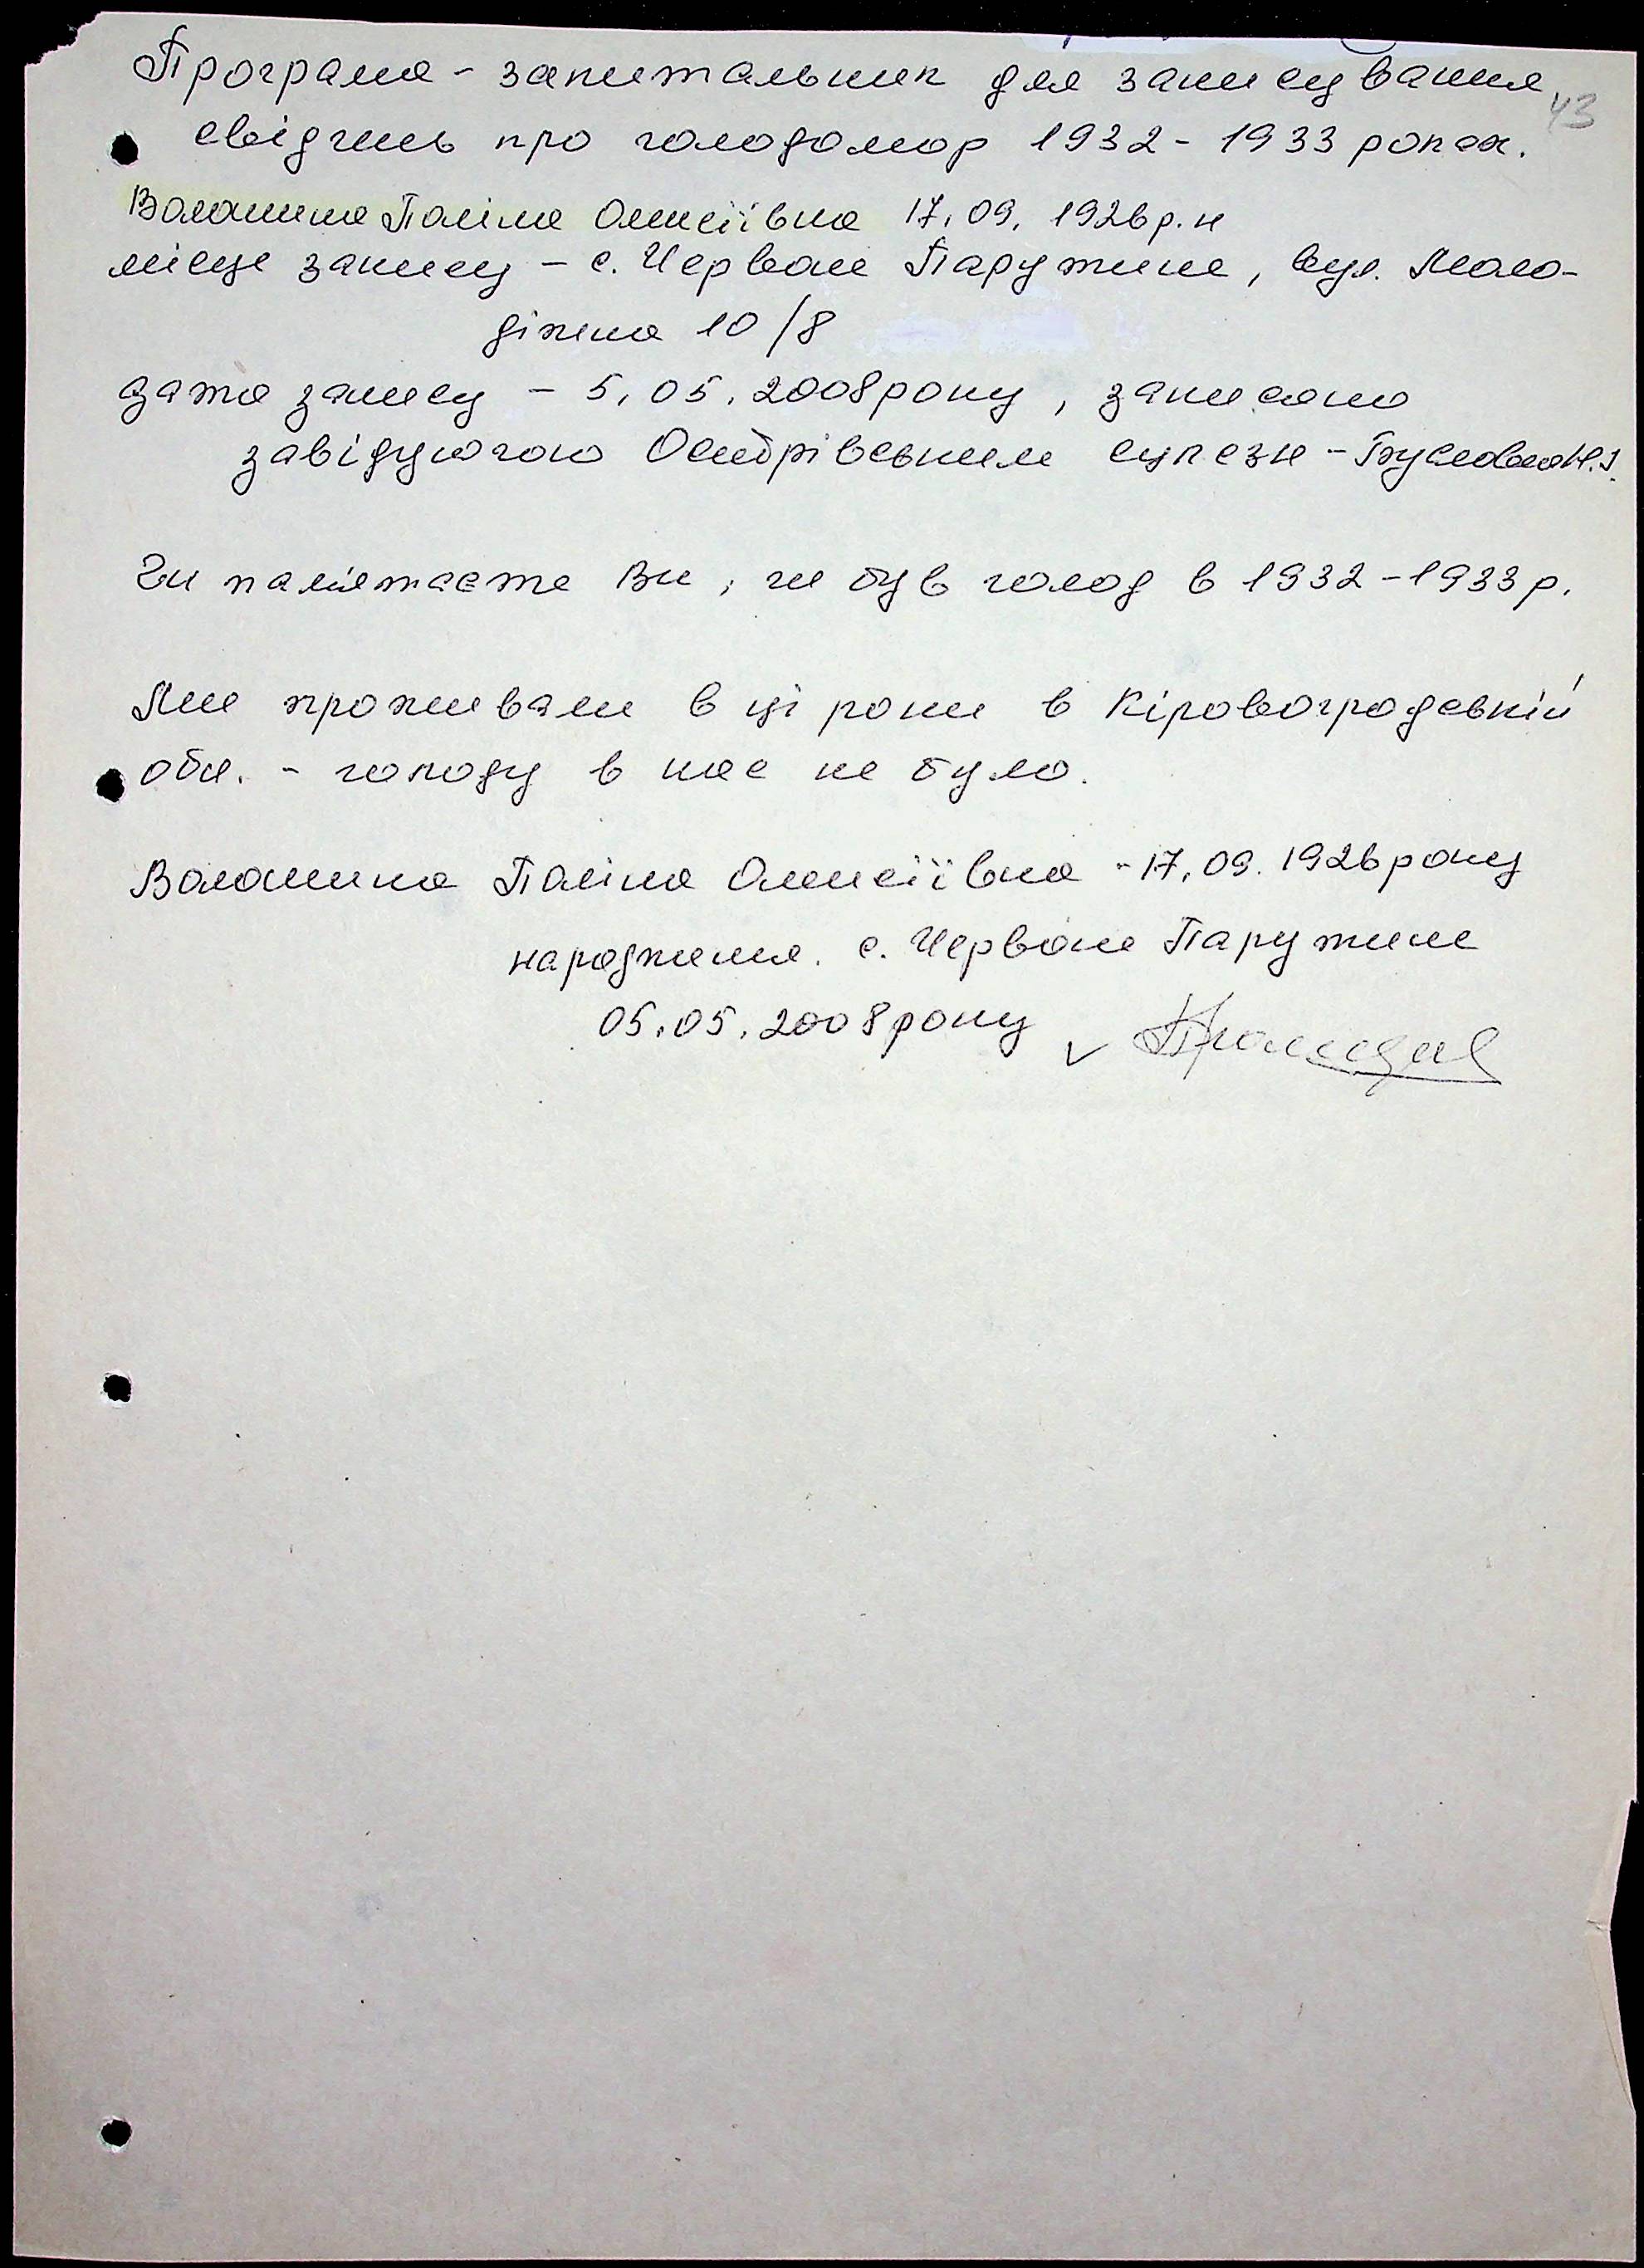 Програма - запитальник для записування
43
свідчень про голодомор 1932 - 1933 роках.
Волошина Поліна Олексіївна 17.09.1926 р.н
місце запису - с. Червоне Парутине, вул. Моло-
діжна 10/8
дата запису - 5.05.2008 року, записано
завідуючою сулкзн - Н.І.
Чи пам'ятаєте Ви, чи був голод в 1932 - 1933 р.
Ми проживали в ці роки в Кіровоградській
обл. - голоду в нас не було.
Волошина Поліна Олексіївна - 17.09.1926 року
народження. с. Червоне Парутине
05.05.2008 року